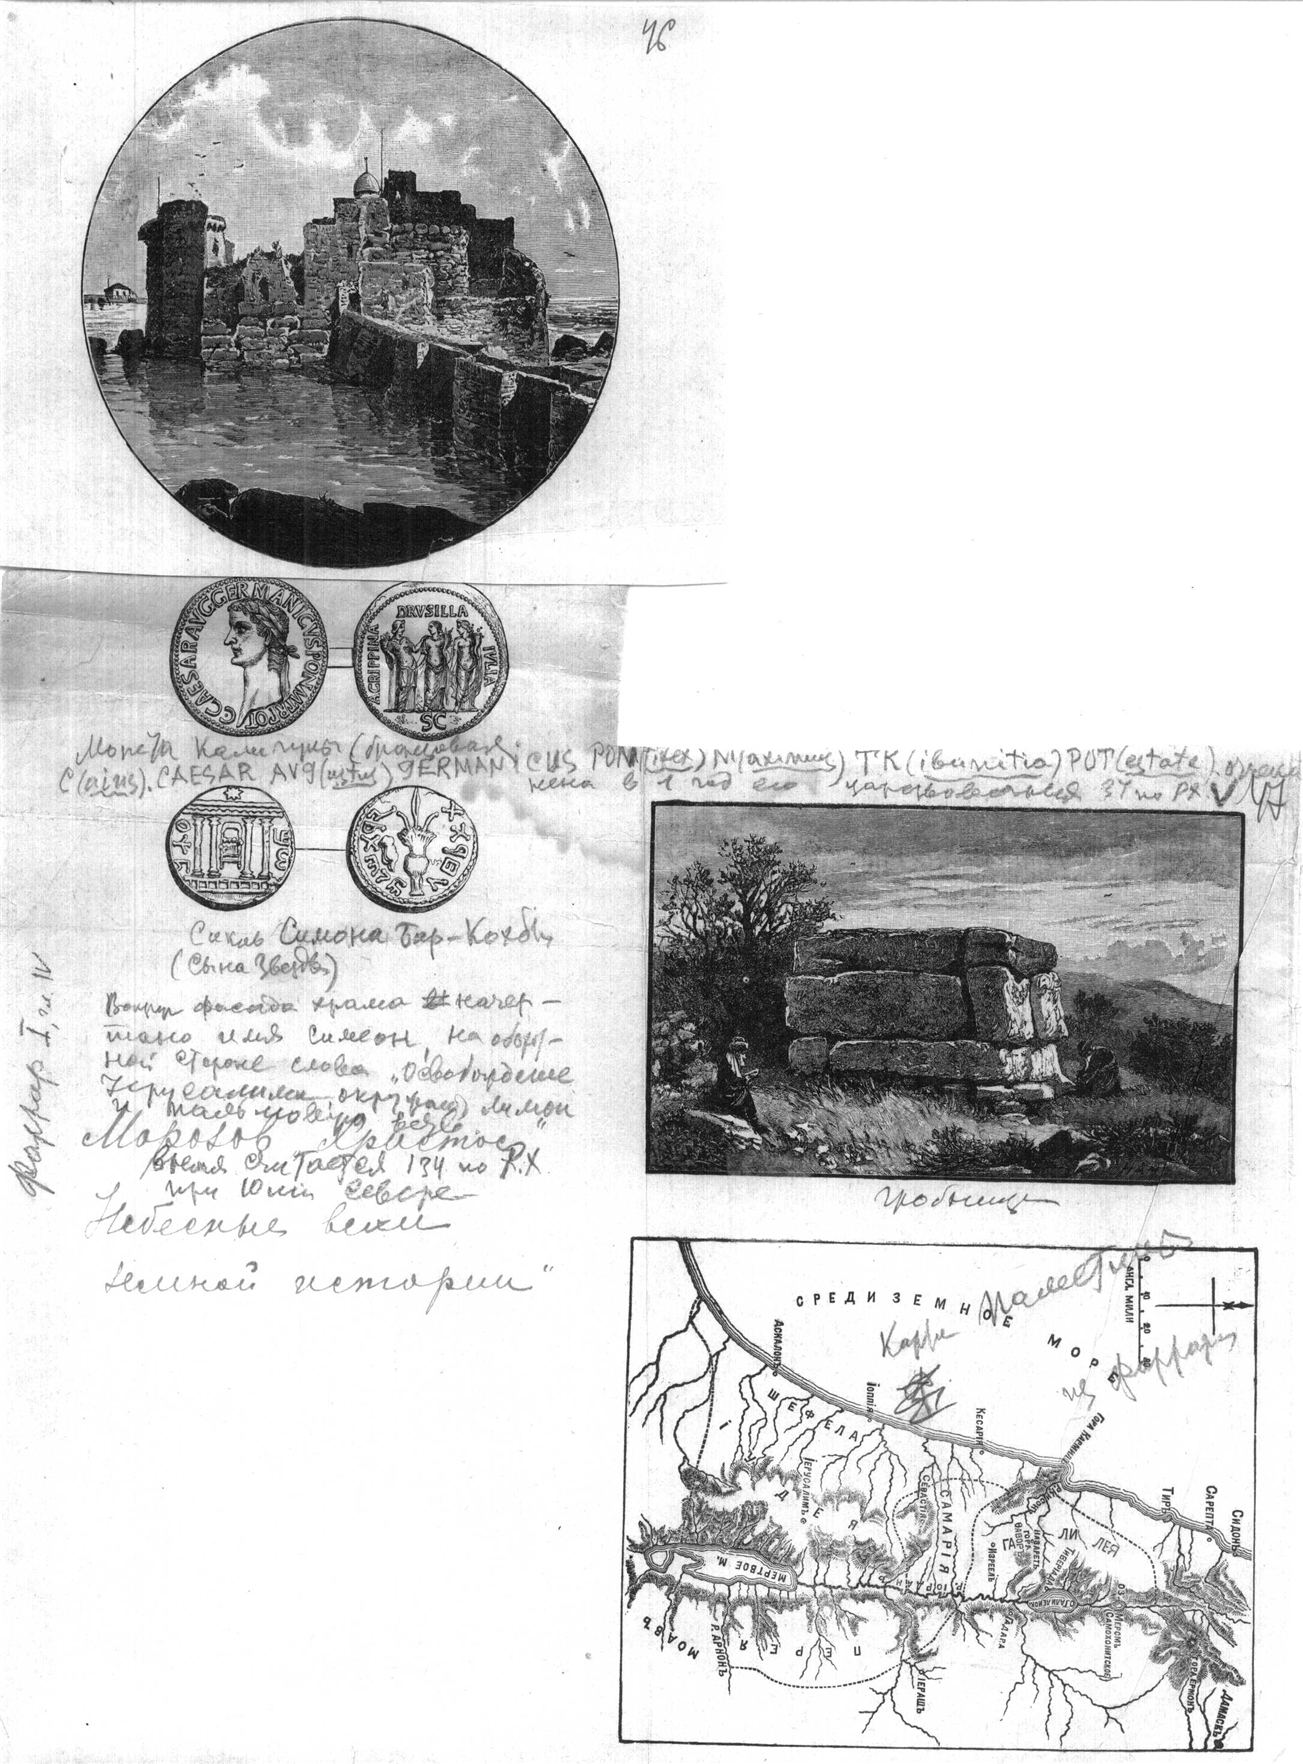 46
C CAESAR AVG GERMANICVS PON M TR POT
AGRIPPINA
DRVSILLA
IVLIA
SC
Монета Калигулы (бронзовая).
C(aius). CAESAR AVG(ustus) GERMANICUS PON(tifex) M(aximus) TR(ibunitia) POT(estate).
в 1 год его царствования 37 по РХ
47
Сикль Симона Бар-Кохбы
(Сына Звезды)
Вокруг фасада храма начер-
тано имя Симеон, на оборот-
ной стороне слова „Освобождение
Иерусалима
Фаррар I, гл. IV
Морозов „Христос"
время считается 134 по Р.Х.
при Юлии Севере
Небесные вехи
земной истории"
гробница
Карта Палестины
из Фаррара
СРЕДИЗЕМНОЕ МОРЕ
АНГЛ. МИЛИ
0 10 20 30
АСКАЛОНЪ
ШЕФЕЛА
ІОППІЯ
КЕСАРІЯ
ГОРА КАРМИЛЪ
ТИРЪ
САРЕПТА
СИДОНЪ
ІУДЕЯ
ІЕРУСАЛИМЪ
САМАРІЯ
СЕВАСТІЯ
ГАЛИЛЕЯ
НАЗАРЕТЪ
ГОРА ѲАВОРЪ
ИЗРЕЕЛЬ
ТИВЕРІАДА
Р. ІОРДАНЪ
МЕРТВОЕ М.
О. ГАЛИЛЕЙСК.
ОЗ. МЕРОМЪ
САМОХОНИТСКОЕ
ГАДАРА
ПЕРЕЯ
МОАВЪ
Р. АРНОНЪ
ГЕРАШЪ
ГОРА ЕРМОНЪ
ДАМАСКЪ